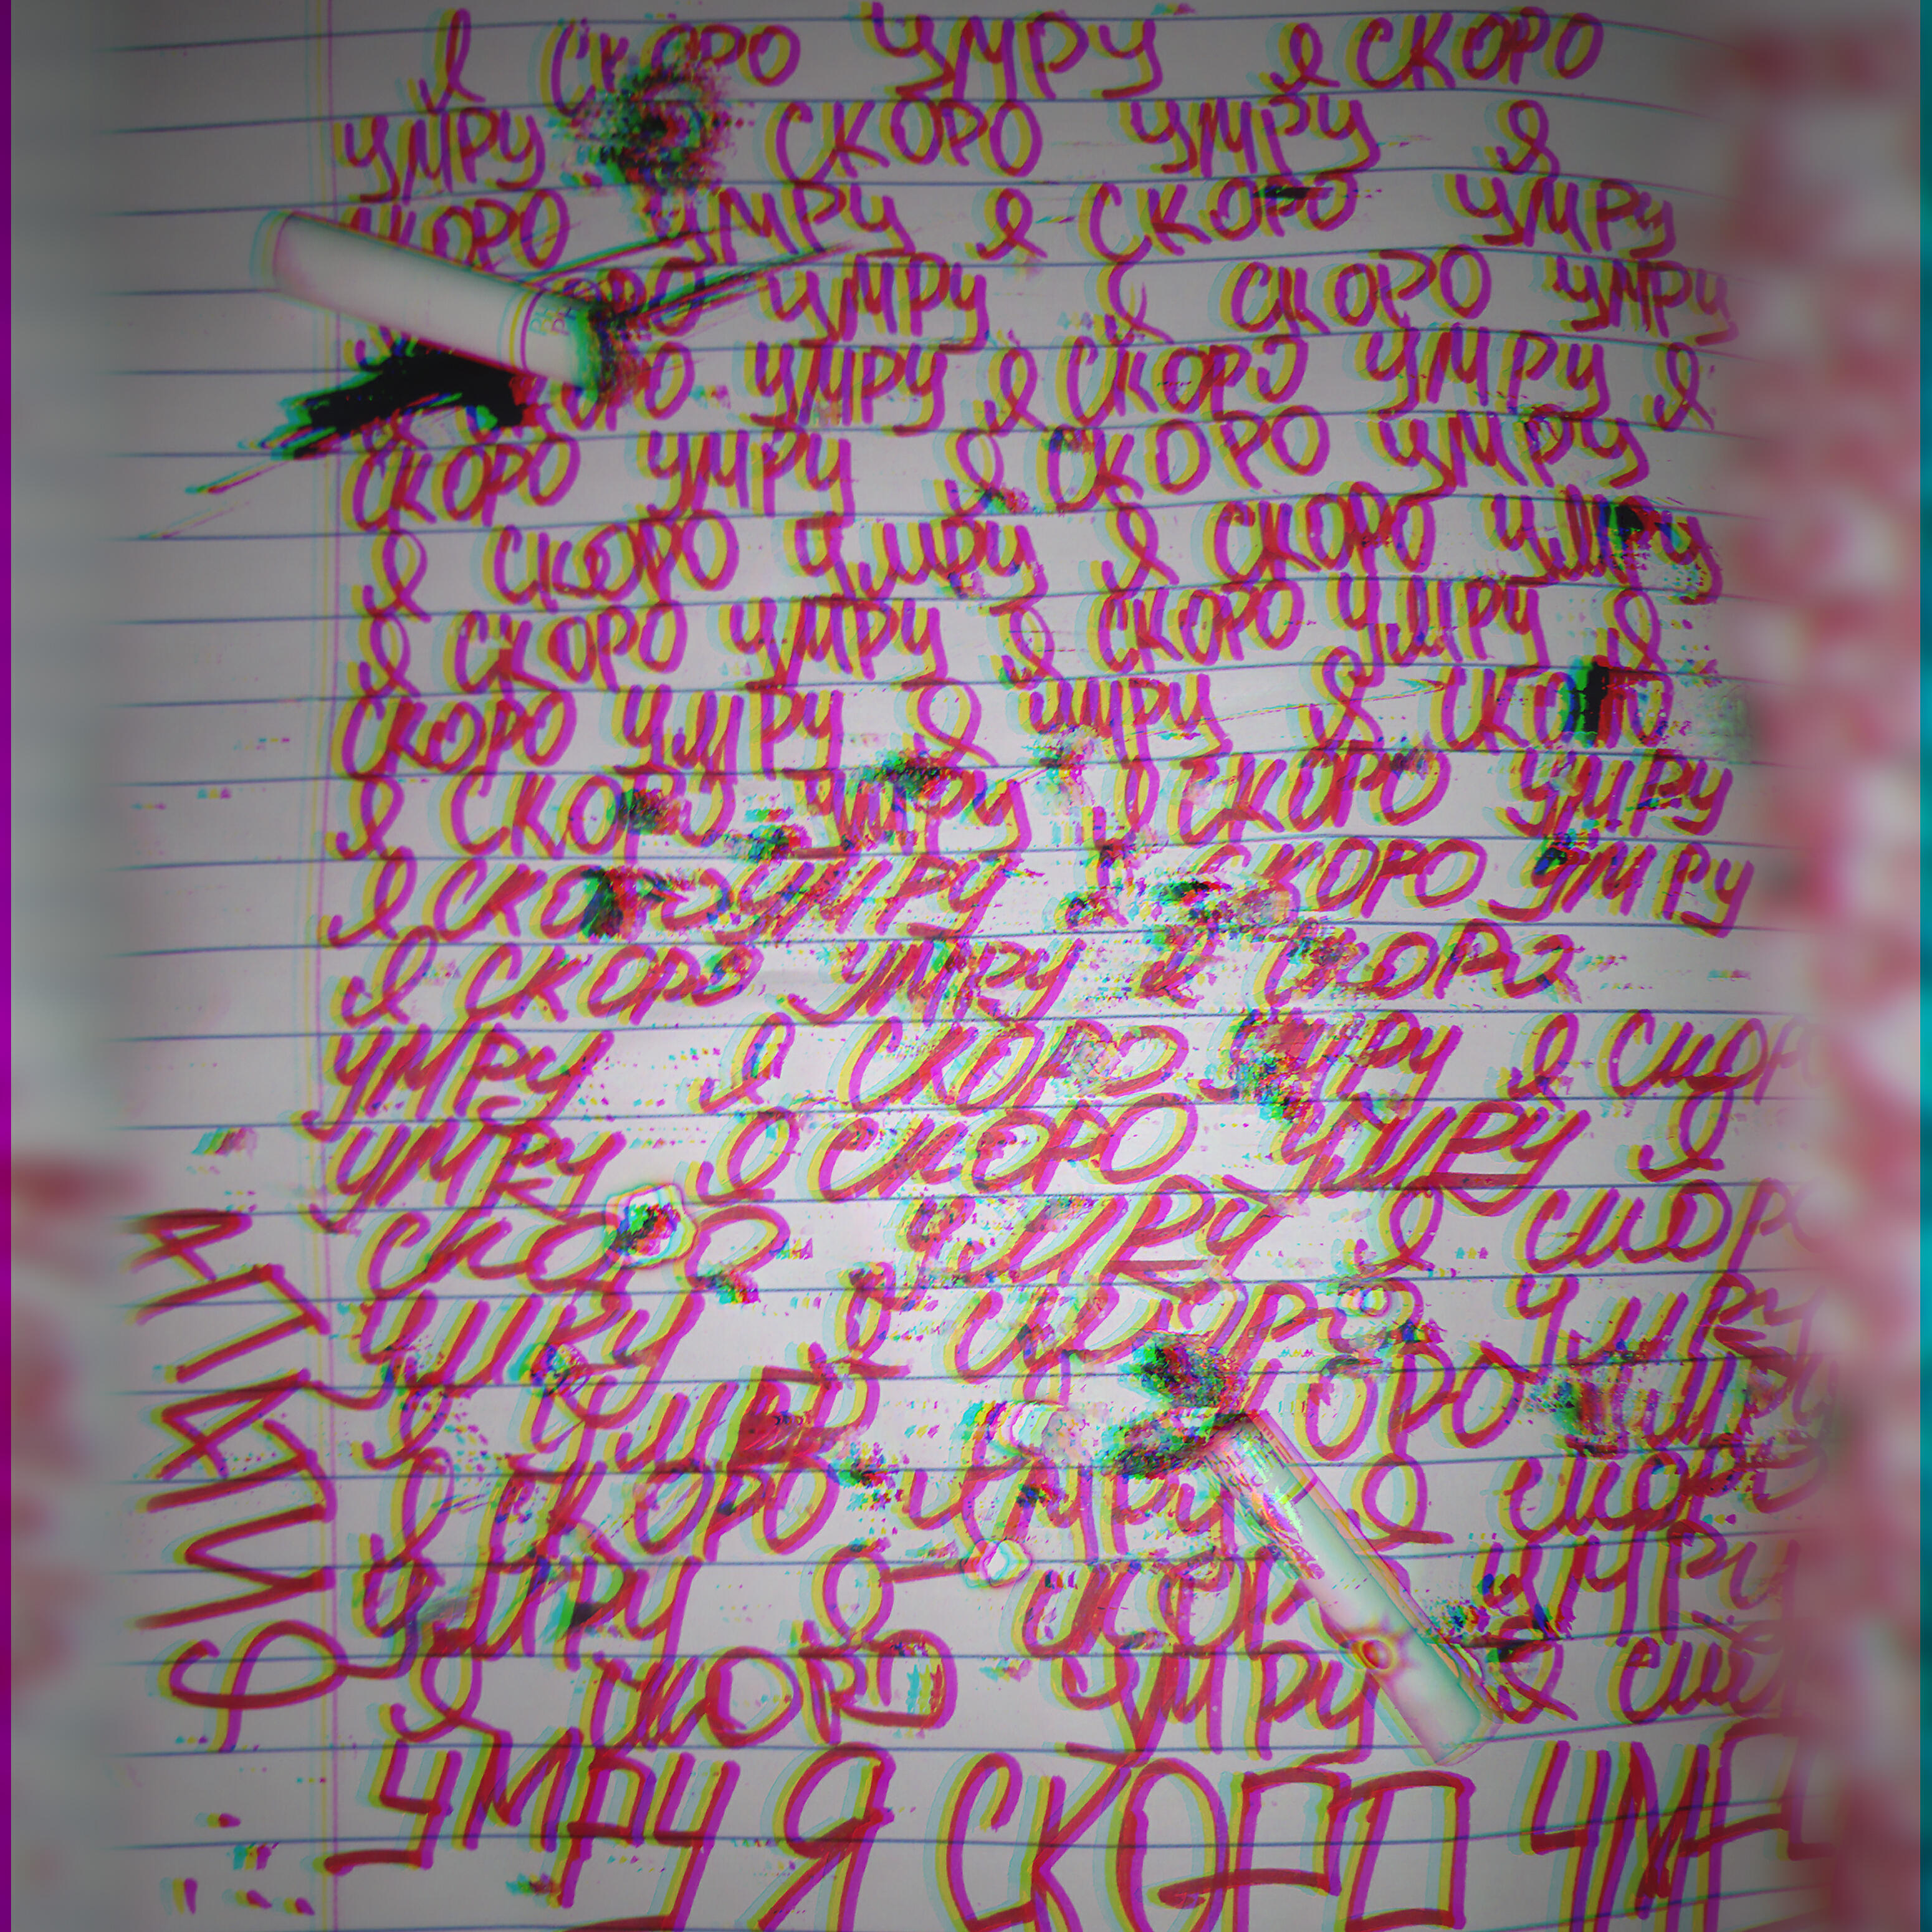 Я СКОРО УМРУ Я СКОРО
УМРУ СКОРО УМРУ Я
СКОРО УМРУ Я СКОРО УМРУ
УМРУ Я СКОРО УМРУ
СКОРО УМРУ Я СКОРО УМРУ Я
СКОРО УМРУ Я СКОРО УМРУ
Я СКОРО УМРУ Я СКОРО УМРУ
Я СКОРО УМРУ Я СКОРО УМРУ Я
СКОРО УМРУ Я УМРУ Я СКОРО
Я СКОРО УМРУ Я СКОРО УМРУ
Я СКОРО УМРУ Я СКОРО УМРУ
Я СКОРО УМРУ Я СКОРО
УМРУ Я СКОРО УМРУ Я СКОРО
УМРУ Я СКОРО УМРУ Я
СКОРО УМРУ Я СКОРО
УМРУ Я СКОРО УМРУ
Я УМРУ
Я СКОРО УМРУ Я СКОРО
УМРУ Я УМРУ
Я СКОРО УМРУ Я
УМРУ Я СКОРО